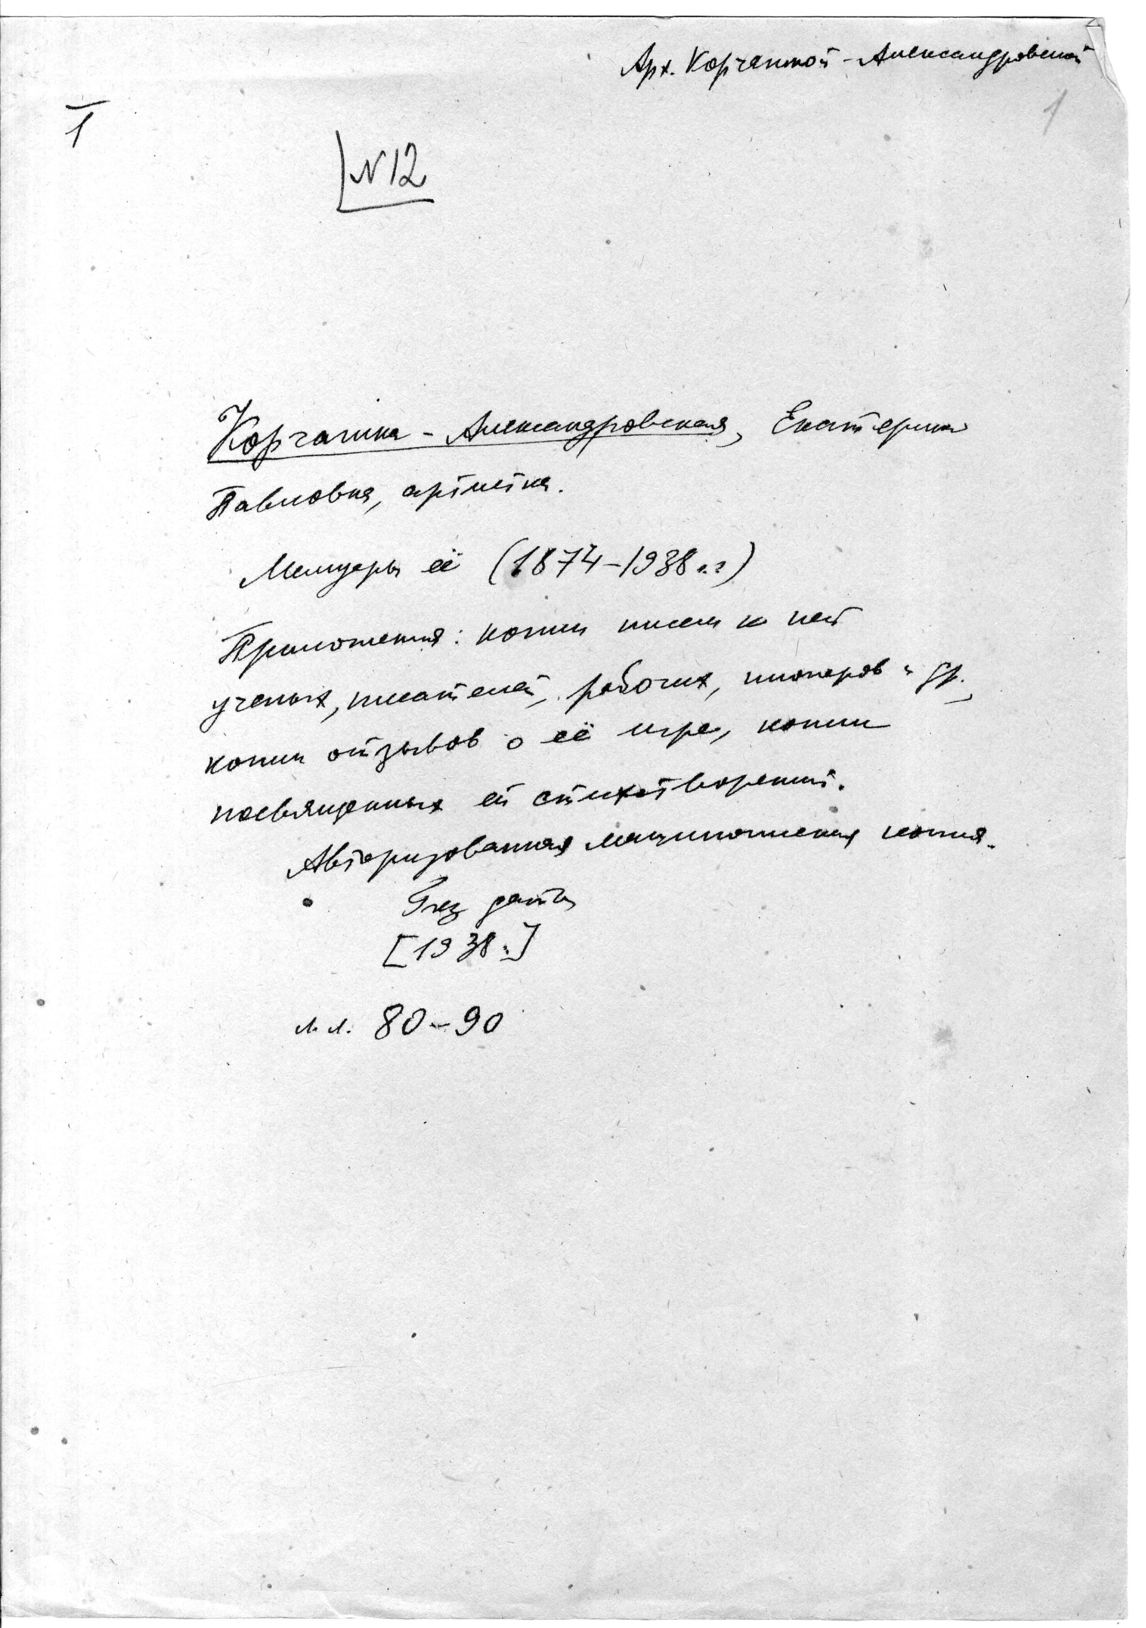 Арх. Корчагиной-Александровской
1
1
№12
Корчагина-Александровская, Екатерина
Павловна, артистка.
Мемуары её (1874-1938 гг)
Приложения: копии писем к ней
ученых, писателей, рабочих, пионеров и др.,
копии отзывов о её игре, копии
посвященных ей стихотворений.
Авторизованная машинописная копия.
Без даты
[1938 г.]
л.л. 80-90